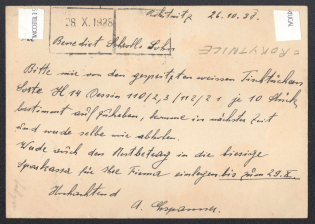 28. X. 1938
Rokitnitz 26.10.38.
= ROKYTNICE
Benedikt Schroll's Sohn
Bitte mir von den gespritzten weissen Tischtüchern
Sorte H 14 Dessin 110/2, 3/112/2 1 je 10 Stück
bestimmt aufzuheben, komme in nächster Zeit
und werde selbe mir abholen.
Werde auch den Restbetrag in die hiesige
Sparkassa für Ihre Firma einlegen bis zum 29.X.
Hochachtend
A.